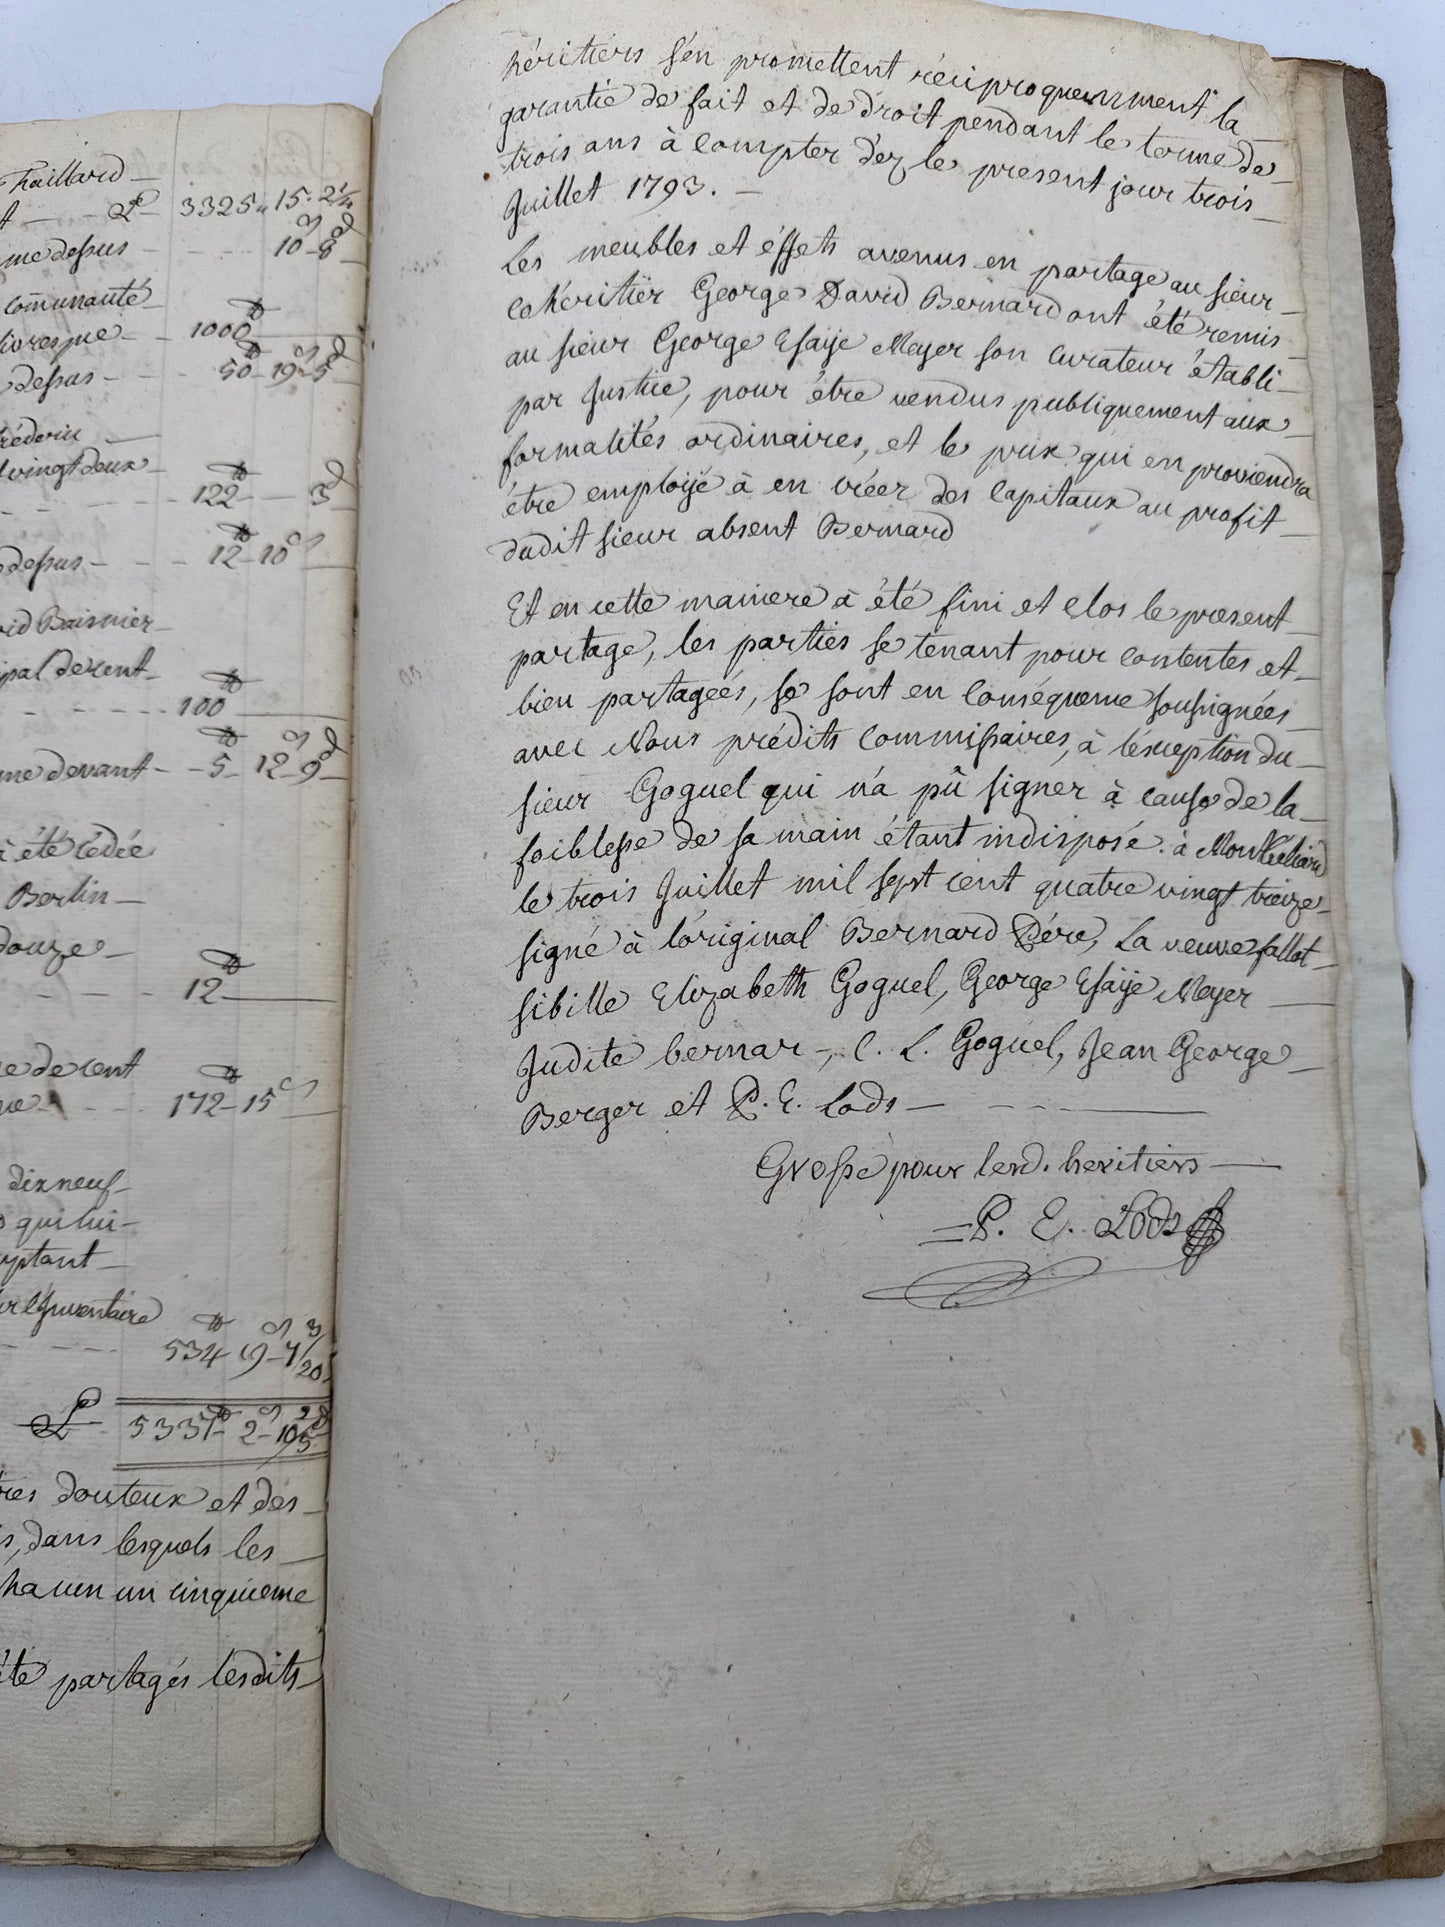 Thaillard
t — £ 3325 „ 15 . 2 1/4
me dessus - - - 10 - 8
communauté
livres pie - - 1000
dessus - - - 50 - 19 - 5
réderic
vingt deux
- - - 122 - 3
dessus - - - 12 - 10
vid Baisnier
ipal de cent
- - - - 100
me devant - - 5 - 12 - 9
à été cédée
Berlin
douze
- - - - 12
e de cent
- - - 172 - 15
dix neuf
s qui lui
ptant
ur l'Inventaire
- - - 534 - 19 - 7 3/20
£ - 5337 - 2 - 10 2/5
res douteux et des
s, dans lesquels les
hacun un cinquieme
été partagés lesdits
héritiers s'en promettent réciproquemment la
garantie de fait et de droit pendant le terme de
trois ans à compter d'ez le present jour trois
Juillet 1793. —
Les meubles et éffets avenus en partage au sieur
cohéritiér George David Bernard ont été remis
au sieur George Esaÿe Meyer son Curateur établi
par Justice, pour être vendus publiquement aux
formalités ordinaires, et le prix qui en proviendra
être emploÿé à en créer des Capitaux au profit
dudit sieur absent Bernard
Et en cette maniere à été fini et clos le present
partage, les parties se tenant pour contentes et
bien partageés, se sont en conséquence soussignées
avec Nous prédits Commissaires, à léxception du
sieur Goguel qui n'a pû signer à cause de la
foiblesse de sa main étant indisposé. à Montbéliard
le trois Juillet mil sept cent quatre vingt treize
signé à lóriginal Bernard Pére, La veuve fallot
sibille Elizabeth Goguel, George Esaÿe Meyer
Judite bernar -, C. L. Goguel, Jean George
Berger et P. E. Lods —
Grosse pour lesd. heritiers —
= P. E. Lods